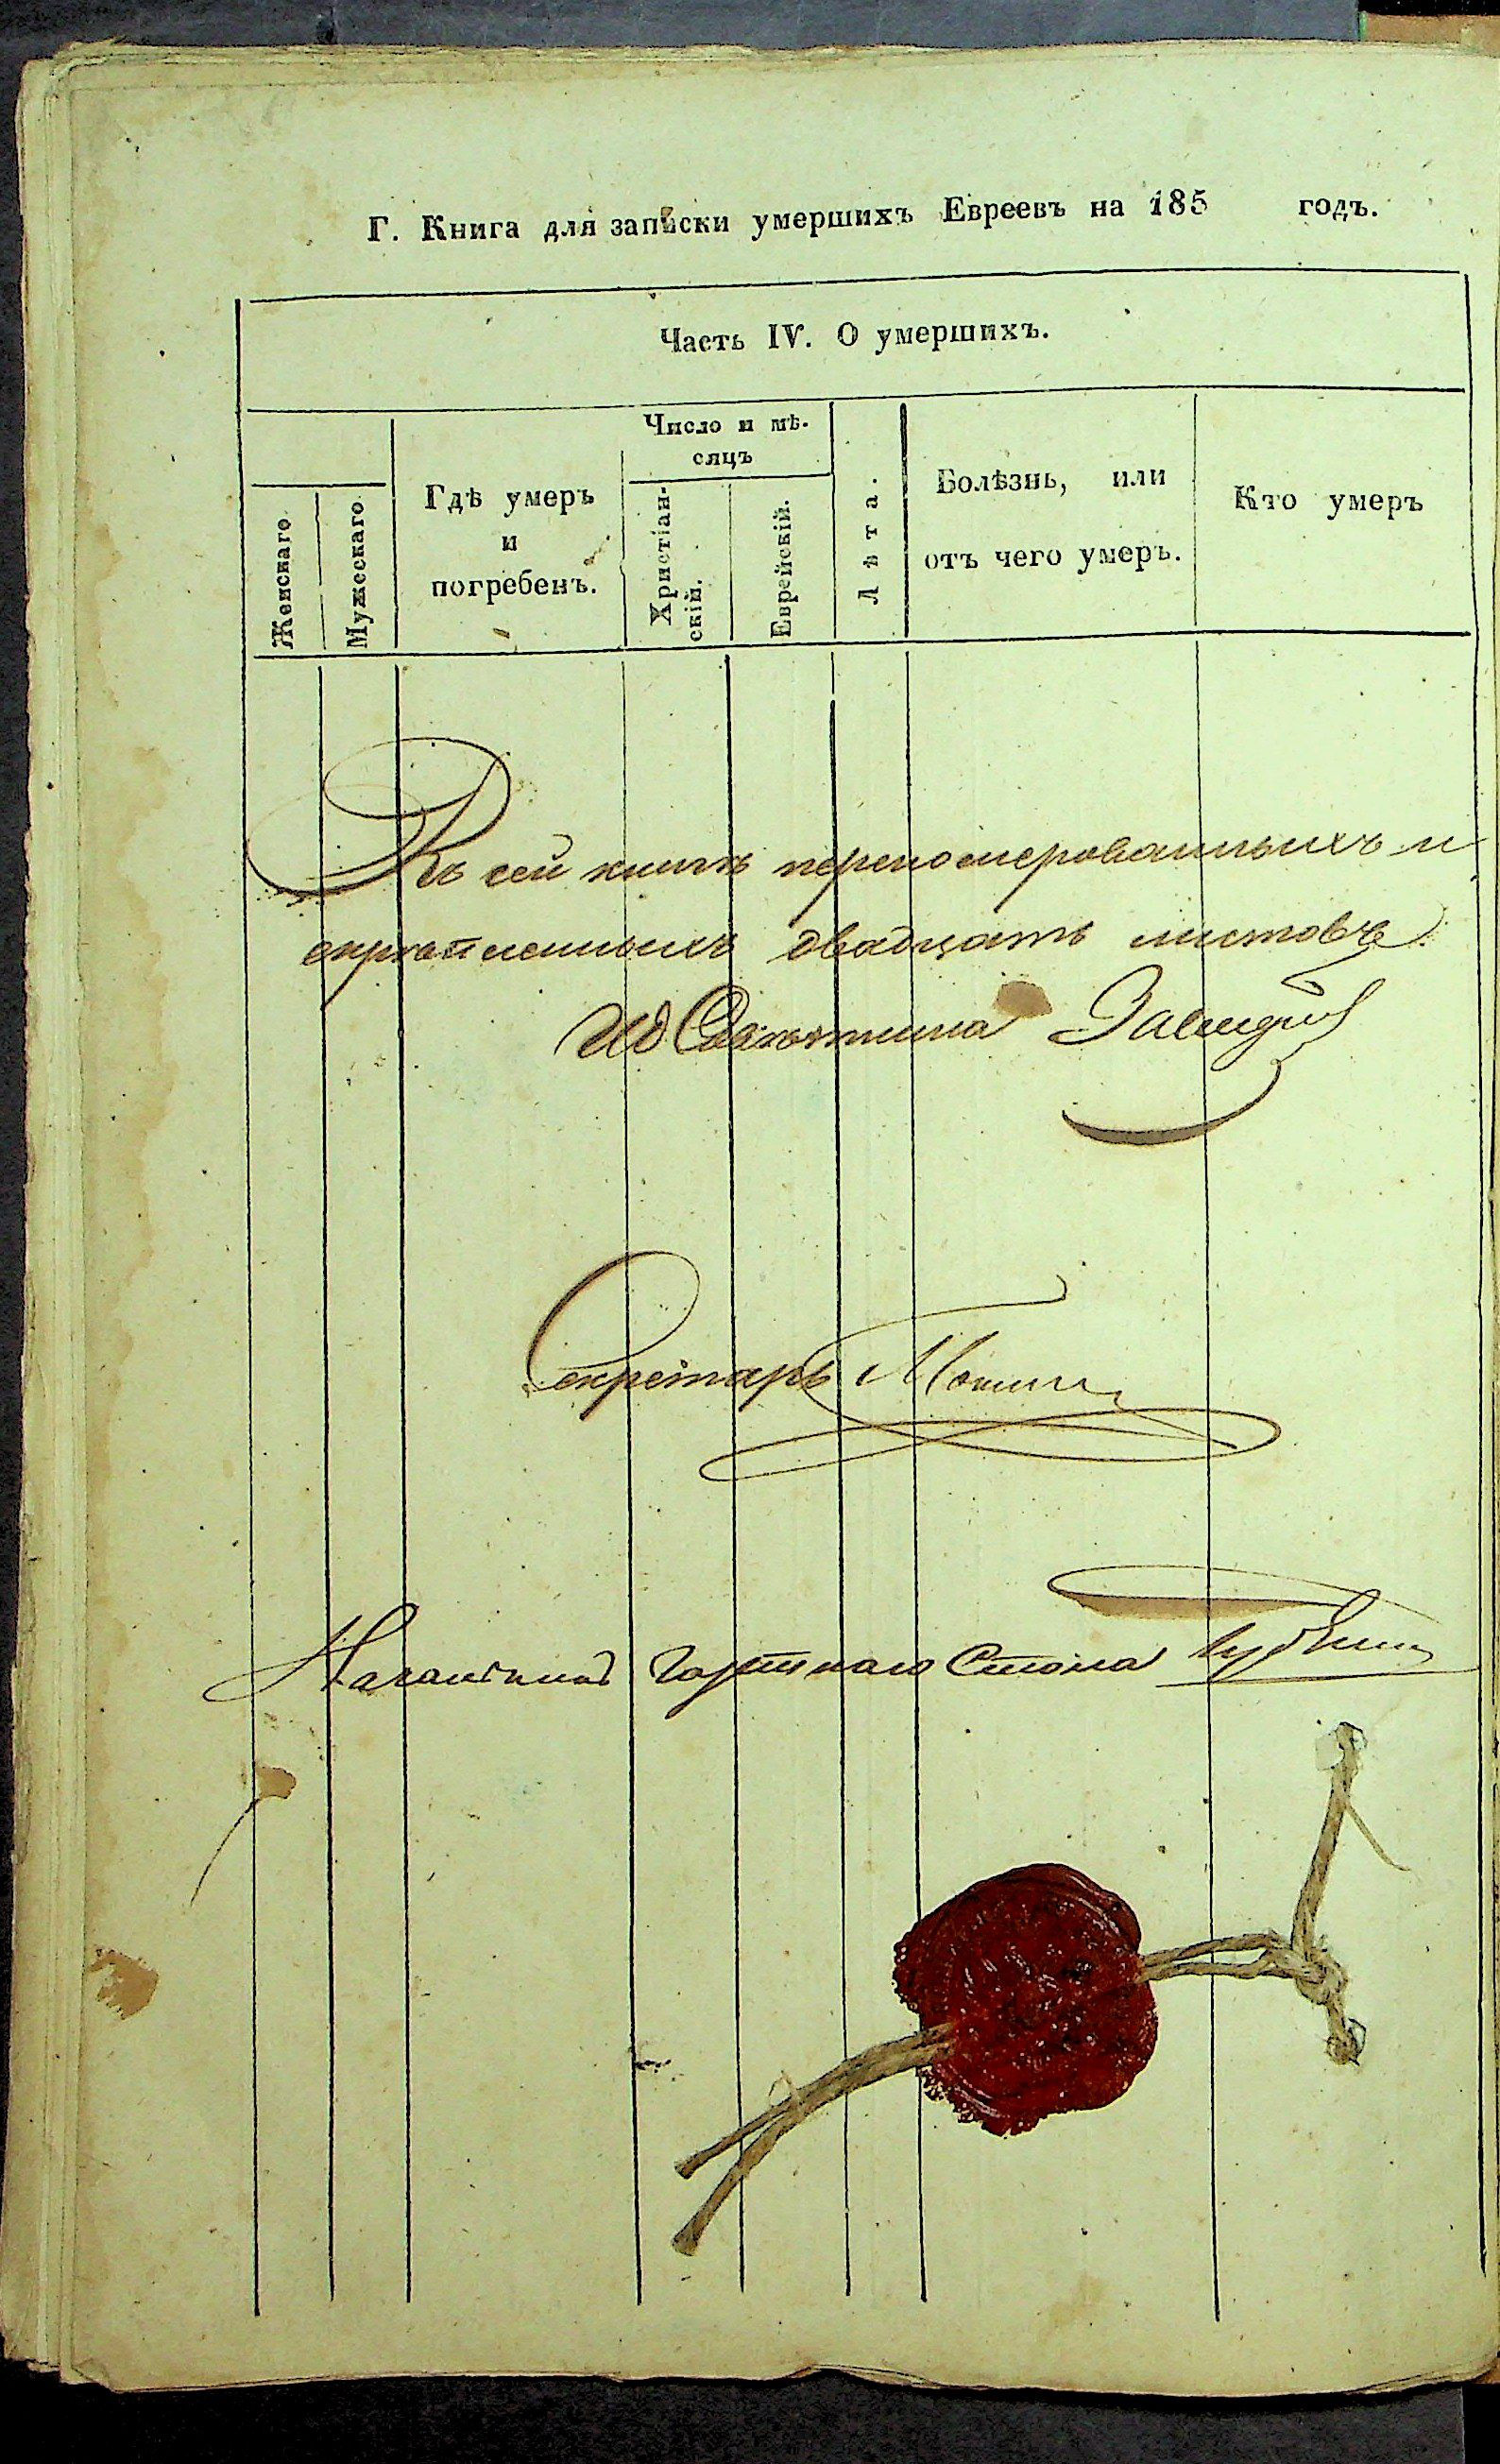 Г. Книга для записки умершихъ Евреевъ на 185 годъ.
Часть IV. О умершихъ.
Женскаго
Мужескаго
Гдѣ умеръ
и
погребенъ.
Число и мѣ-
сяцъ
Христіан-
скій.
Еврейскій.
Лѣта.
Болѣзнь, или
отъ чего умеръ.
Кто умеръ
Въ сей книгѣ переномерованныхъ и
скрѣпленныхъ двадцать листовъ.
ИД Совѣтника
Секретарь
Начальникъ Стола